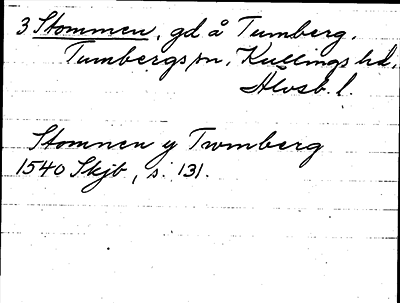 3 Stommen, gd å Tumberg,
Tumbergs sn, Kullings hd,
Älvsb. l.
Stomnen y Twmberg
1540 Skjb, s. 131.